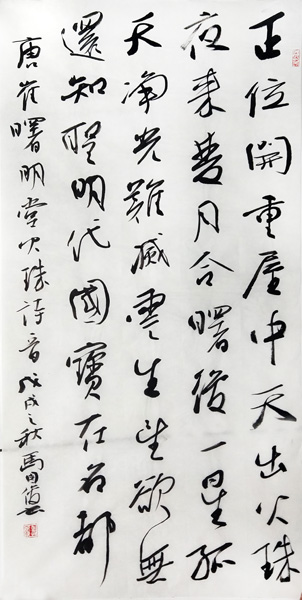 正位開重屋中天出火珠
夜来雙月合曙後一星孤
天净光難滅雲生望欲無
還知聖明代國寶在名都
唐崔曙明堂火珠詩一首 戊戌之秋馬